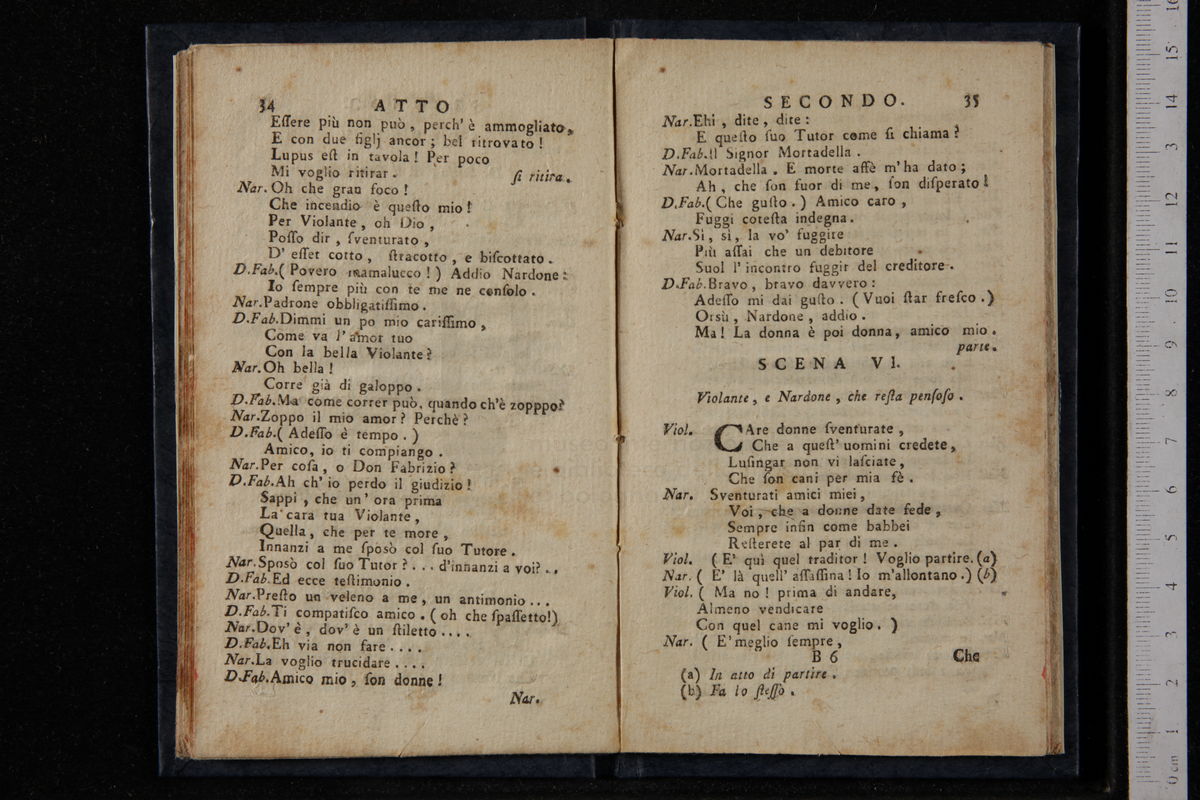 34 ATTO
Eſſere più non può, perch' è ammogliato,
E con due figlj ancor; bel ritrovato!
Lupus eſt in tavola! Per poco
Mi voglio ritirar. ſi ritira.
Nar. Oh che gran foco!
Che incendio è queſto mio!
Per Violante, oh Dio,
Poſſo dir, ſventurato,
D' eſſer cotto, ſtracotto, e biſcottato.
D.Fab.( Povero mamalucco!) Addio Nardone:
Io ſempre più con te me ne conſolo.
Nar.Padrone obbligatiſſimo.
D.Fab.Dimmi un po mio cariſſimo,
Come va l'amor tuo
Con la bella Violante?
Nar.Oh bella!
Corre già di galoppo.
D.Fab.Ma come correr può, quando ch'è zopppo?
Nar.Zoppo il mio amor? Perchè?
D.Fab.( Adeſſo è tempo.)
Amico, io ti compiango.
Nar.Per coſa, o Don Fabrizio?
D.Fab.Ah ch' io perdo il giudizio!
Sappi, che un' ora prima
La cara tua Violante,
Quella, che per te more,
Innanzi a me ſposò col ſuo Tutore.
Nar.Sposò col ſuo Tutor?... d'innanzi a voi?..
D.Fab.Ed ecce teſtimonio.
Nar.Preſto un veleno a me, un antimonio...
D.Fab.Ti compatiſco amico. ( oh che ſpaſſetto!)
Nar.Dov' è, dov' è un ſtiletto....
D.Fab.Eh via non fare....
Nar.La voglio trucidare....
D.Fab.Amico mio, ſon donne!
Nar.
SECONDO. 35
Nar.Ehi, dite, dite:
E queſto ſuo Tutor come ſi chiama?
D.Fab.Il Signor Mortadella.
Nar.Mortadella. E morte affè m'ha dato;
Ah, che ſon fuor di me, ſon diſperato!
D.Fab.( Che guſto.) Amico caro,
Fuggi coteſta indegna.
Nar.Sì, sì, la vo' fuggire
Più aſſai che un debitore
Suol l' incontro fuggir del creditore.
D.Fab.Bravo, bravo davvero:
Adeſſo mi dai guſto. (Vuoi ſtar freſco.)
Orsù, Nardone, addio.
Ma! La donna è poi donna, amico mio.
parte.
SCENA VI.
Violante, e Nardone, che reſta penſoſo.
Viol. CAre donne ſventurate,
Che a queſt' uomini credete,
Luſingar non vi laſciate,
Che ſon cani per mia fè.
Nar. Sventurati amici miei,
Voi, che a donne date fede,
Sempre infin come babbei
Reſterete al par di me.
Viol. ( E' quì quel traditor! Voglio partire.(a)
Nar. ( E' là quell' aſſaſſina! Io m'allontano.) (b)
Viol. ( Ma no! prima di andare,
Almeno vendicare
Con quel cane mi voglio. )
Nar. ( E'meglio ſempre,
B 6 Che
(a) In atto di partire.
(b) Fa lo ſteſſo.
0 cm 1 2 3 4 5 6 7 8 9 10 11 12 13 14 15 16